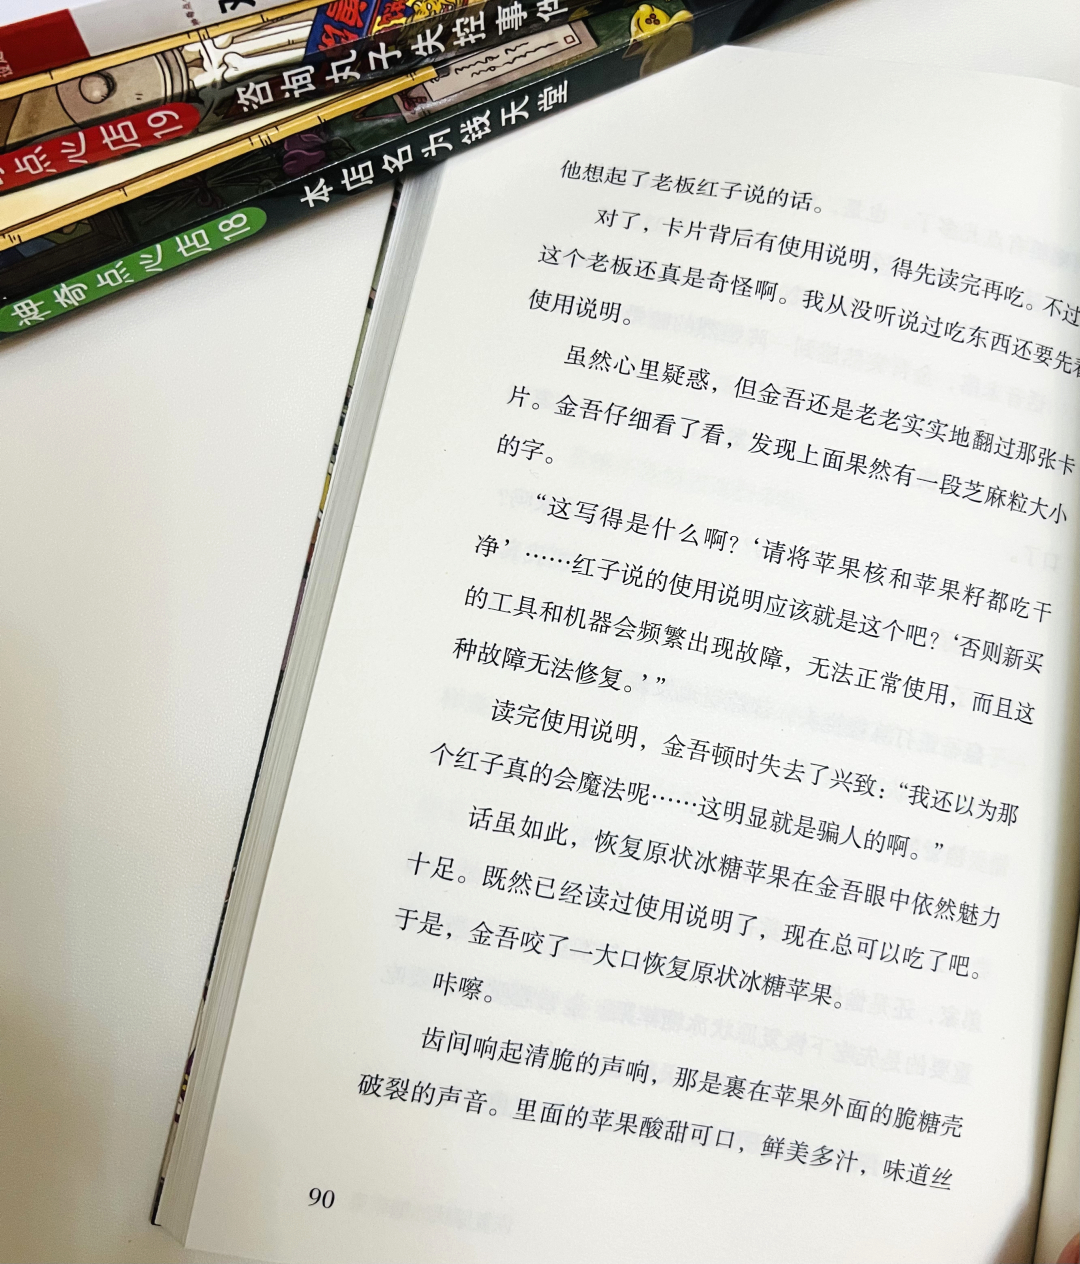 咨询丸子失控事件
点心店19
本店名为钱天堂
神奇点心店18
他想起了老板红子说的话。
对了，卡片背后有使用说明，得先读完再吃。不过
这个老板还真是奇怪啊。我从没听说过吃东西还要先看
使用说明。
虽然心里疑惑，但金吾还是老老实实地翻过那张卡
片。金吾仔细看了看，发现上面果然有一段芝麻粒大小
的字。
“这写得是什么啊？‘请将苹果核和苹果籽都吃干
净’……红子说的使用说明应该就是这个吧？‘否则新买
的工具和机器会频繁出现故障，无法正常使用，而且这
种故障无法修复。’”
读完使用说明，金吾顿时失去了兴致：“我还以为那
个红子真的会魔法呢……这明显就是骗人的啊。”
话虽如此，恢复原状冰糖苹果在金吾眼中依然魅力
十足。既然已经读过使用说明了，现在总可以吃了吧。
于是，金吾咬了一大口恢复原状冰糖苹果。
咔嚓。
齿间响起清脆的声响，那是裹在苹果外面的脆糖壳
破裂的声音。里面的苹果酸甜可口，鲜美多汁，味道丝
90